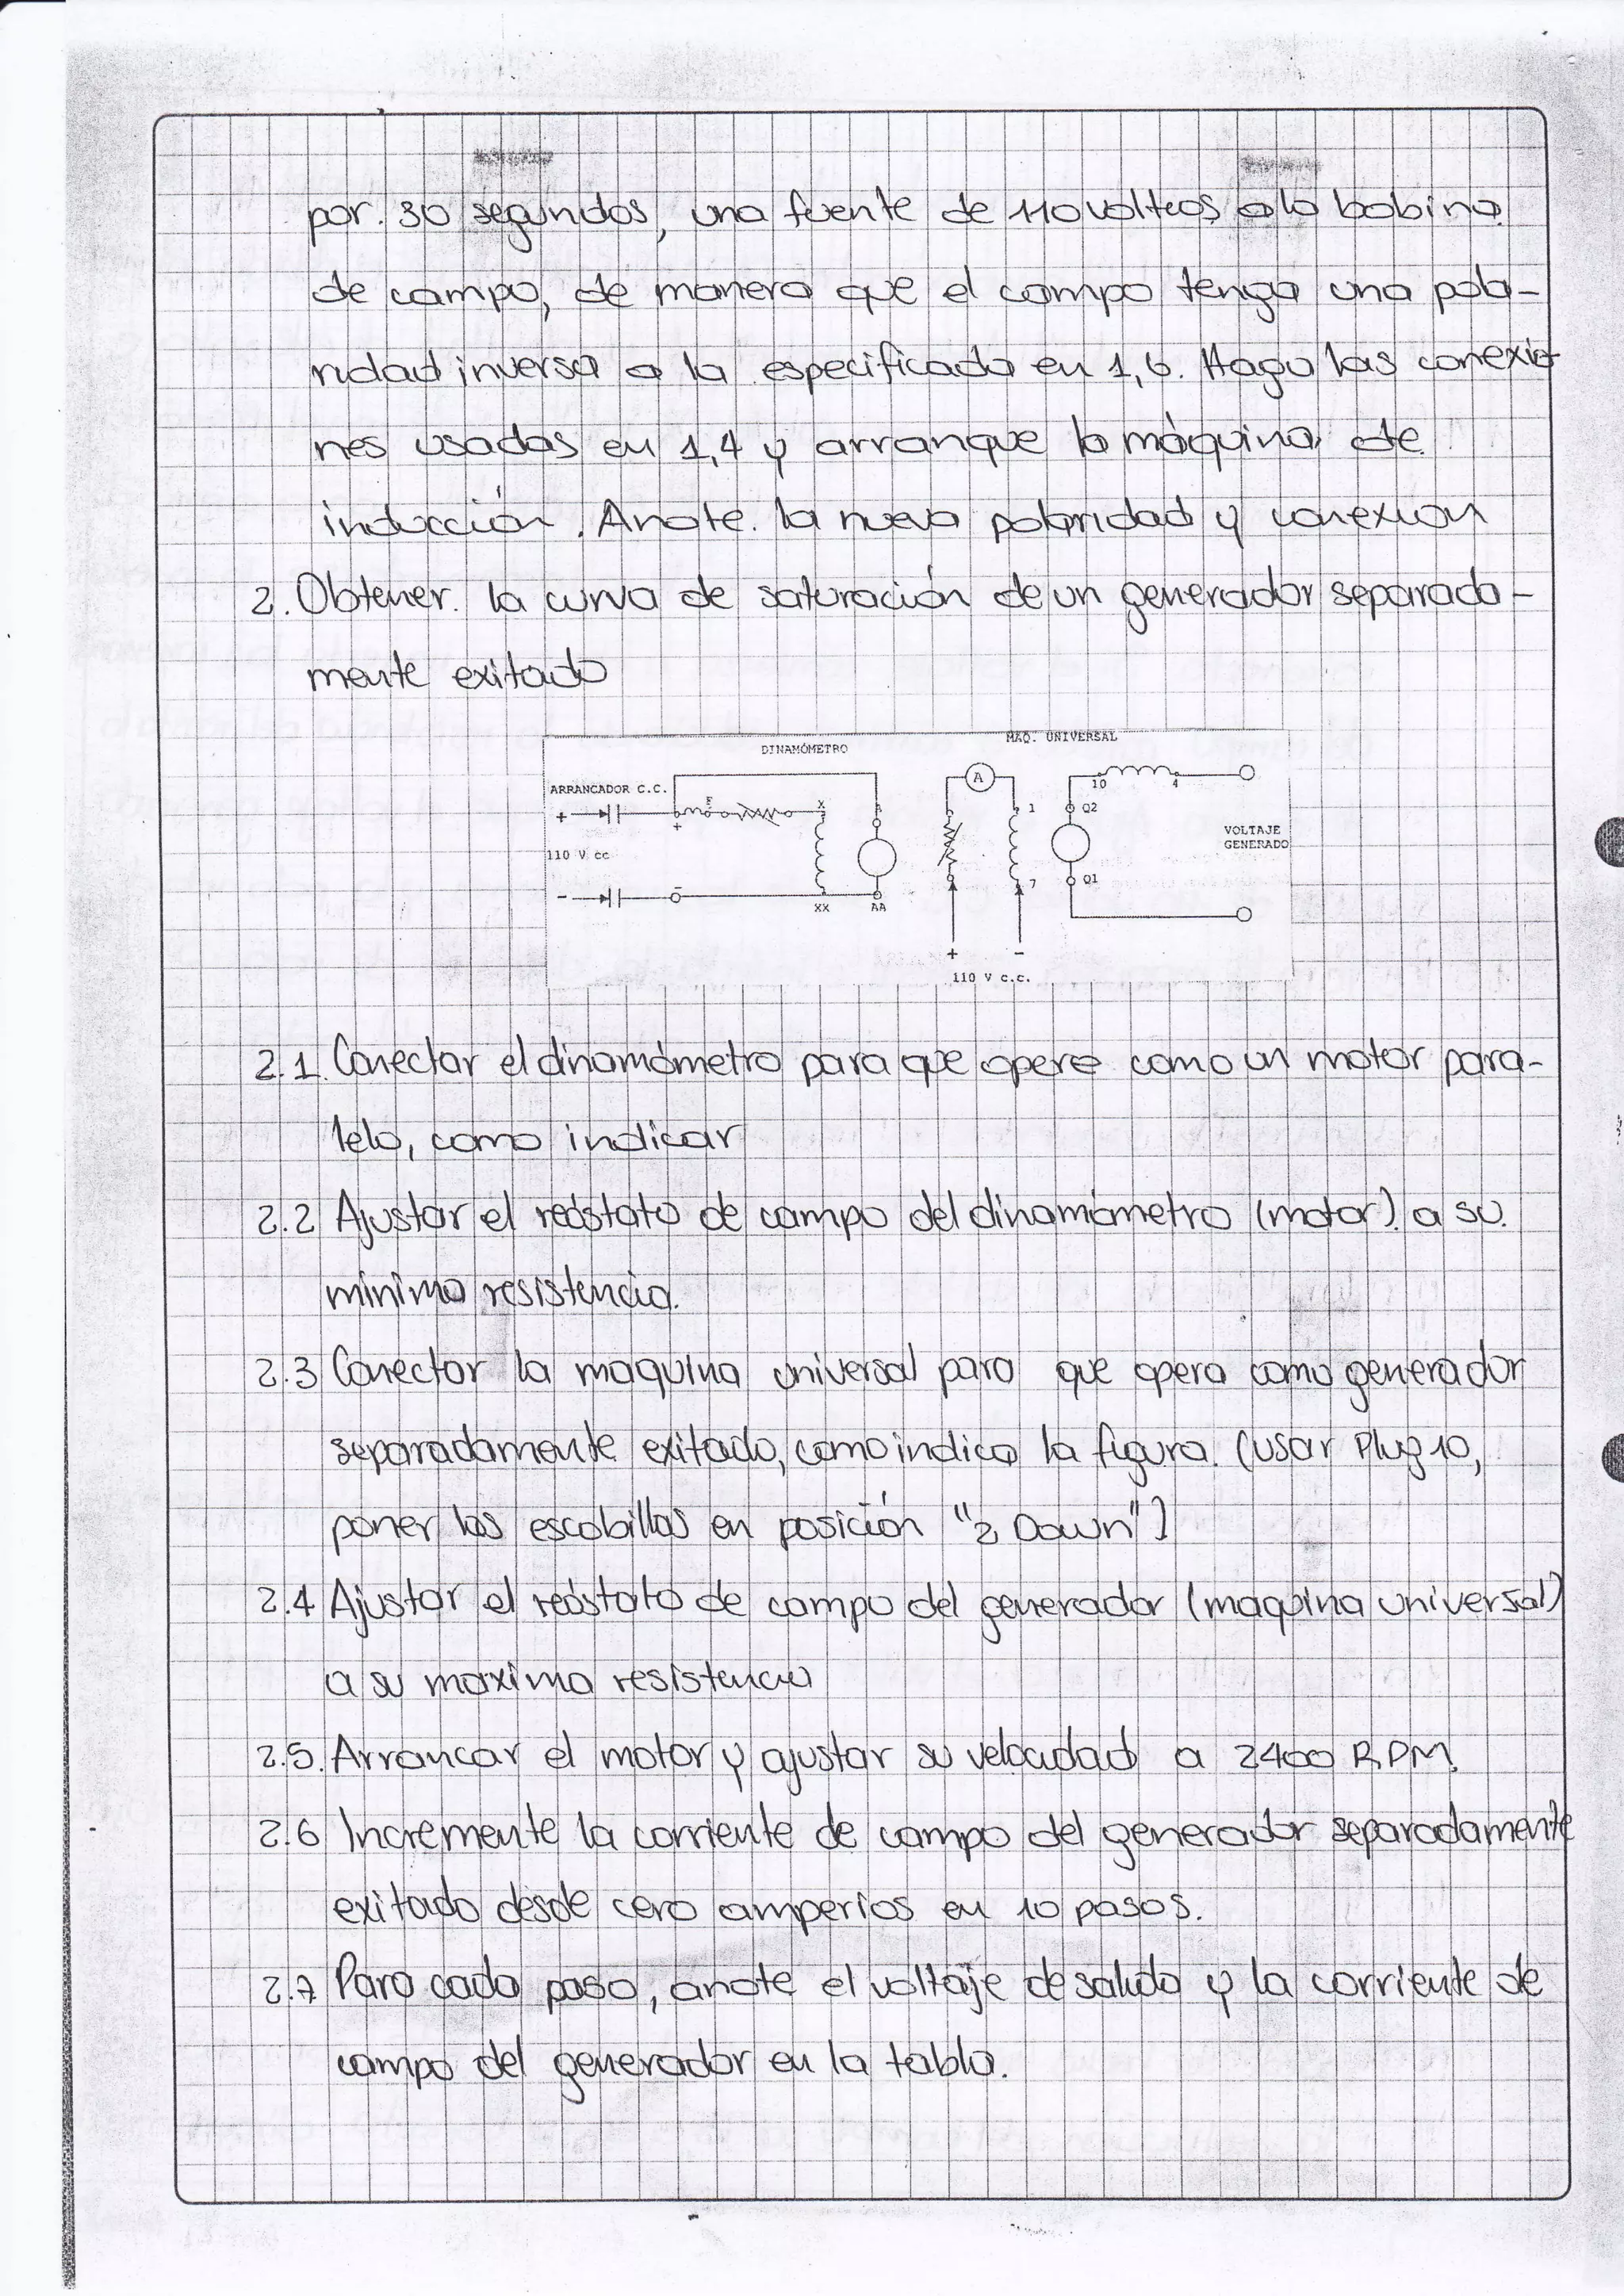 por. 30 segundos, una fuente de 110 volteos a la bobina
de campo, de manera que el campo tenga una pola-
ridad inversa a la especificada en 1,6. Haga las conexio-
nes usadas en 1,4 y arranque la máquina de
inducción. Anote. la nueva polaridad y conexion
2. Obtener. la curva de saturación de un generador separada-
mente exitado
DINAMÓMETRO
MAQ. UNIVERSAL
ARRANCADOR C.C.
F X A
+ +
110 V cc
- -
XX AA
A
1
7
10 4
Q2
Q1
VOLTAJE
GENERADO
+ -
110 V c.c.
2.1. Conectar el dinamómetro para que opere como un motor para-
lelo, como indicar
2.2 Ajustar el reóstato de campo del dinamómetro (motor). a su.
mínima resistencia.
2.3 Conectar la maquina universal para que opera como generador
separadamente exitado, como indica la figura. (usar Plug 10,
poner las escobillas en posición "2 Down")
2.4 Ajustar el reóstato de campo del generador (maquina universal)
a su maxima resistencia
2.5. Arrancar el motor y ajustar su velocidad a 2400 RPM.
2.6 Incremente la corriente de campo del generador separadamente
exitado desde cero amperios en 10 pasos.
2.7 Para cada paso, anote el voltaje de salida y la corriente de
campo del generador en la tabla.